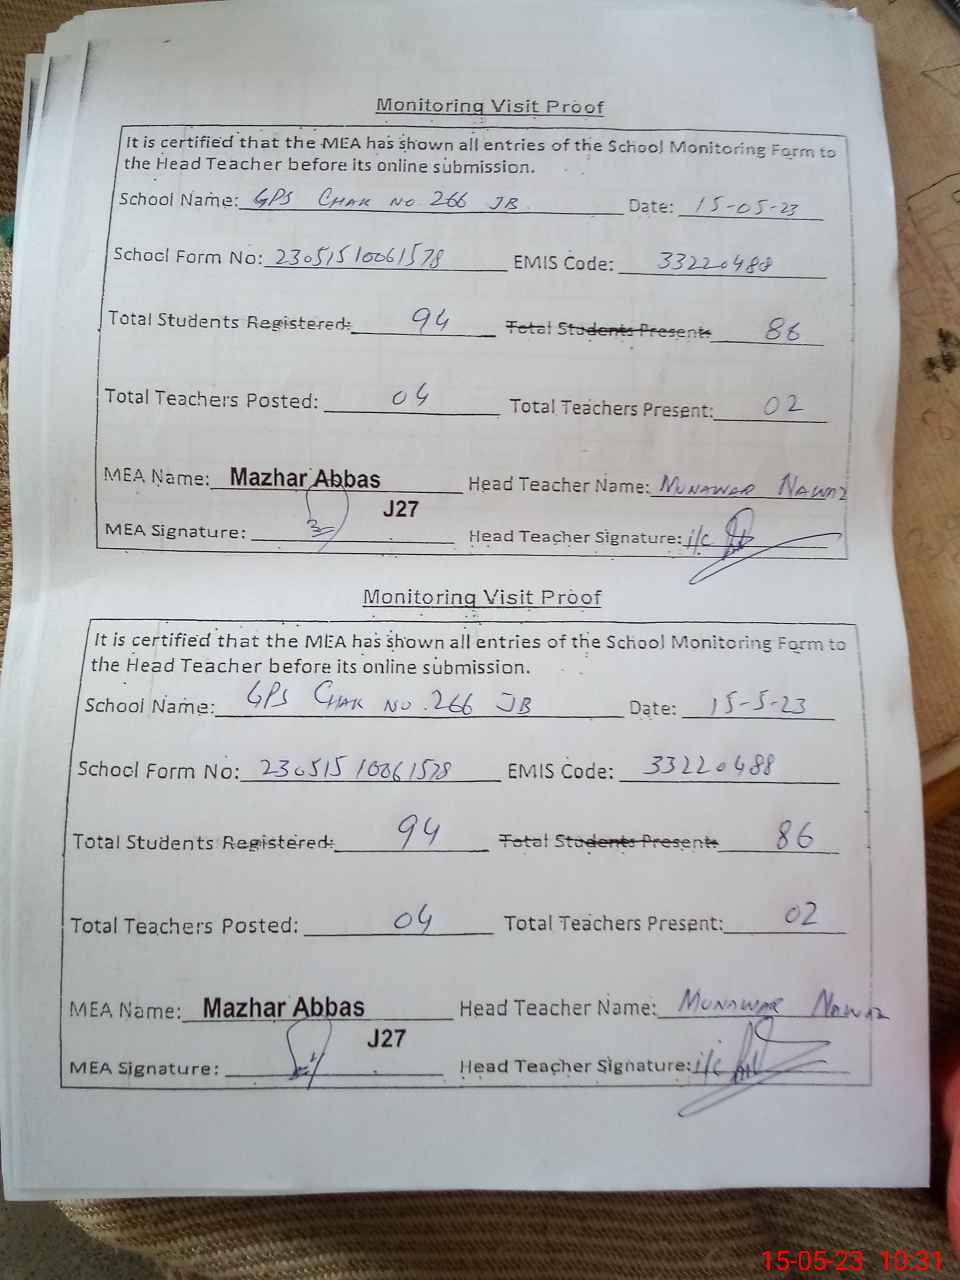 Monitoring Visit Proof
It is certified that the MEA has shown all entries of the School Monitoring Form to
the Head Teacher before its online submission.
School Name: GPS CHAK NO 266 JB Date: 15-05-23
School Form No: 23051510061578 EMIS Code: 33220488
Total Students Registered: 94 Total Students Present: 86
Total Teachers Posted: 04 Total Teachers Present: 02
MEA Name: Mazhar Abbas Head Teacher Name: MUNAWAR NAWAZ
J27
MEA Signature: Head Teacher Signature: i/c
Monitoring Visit Proof
It is certified that the MEA has shown all entries of the School Monitoring Form to
the Head Teacher before its online submission.
School Name: GPS CHAK NO. 266 JB Date: 15-5-23
School Form No: 230515 10061578 EMIS Code: 33220488
Total Students Registered: 94 Total Students Present: 86
Total Teachers Posted: 04 Total Teachers Present: 02
MEA Name: Mazhar Abbas Head Teacher Name: MUNAWAR NAWAZ
J27
MEA Signature: Head Teacher Signature: i/c
15-05-23 10:31